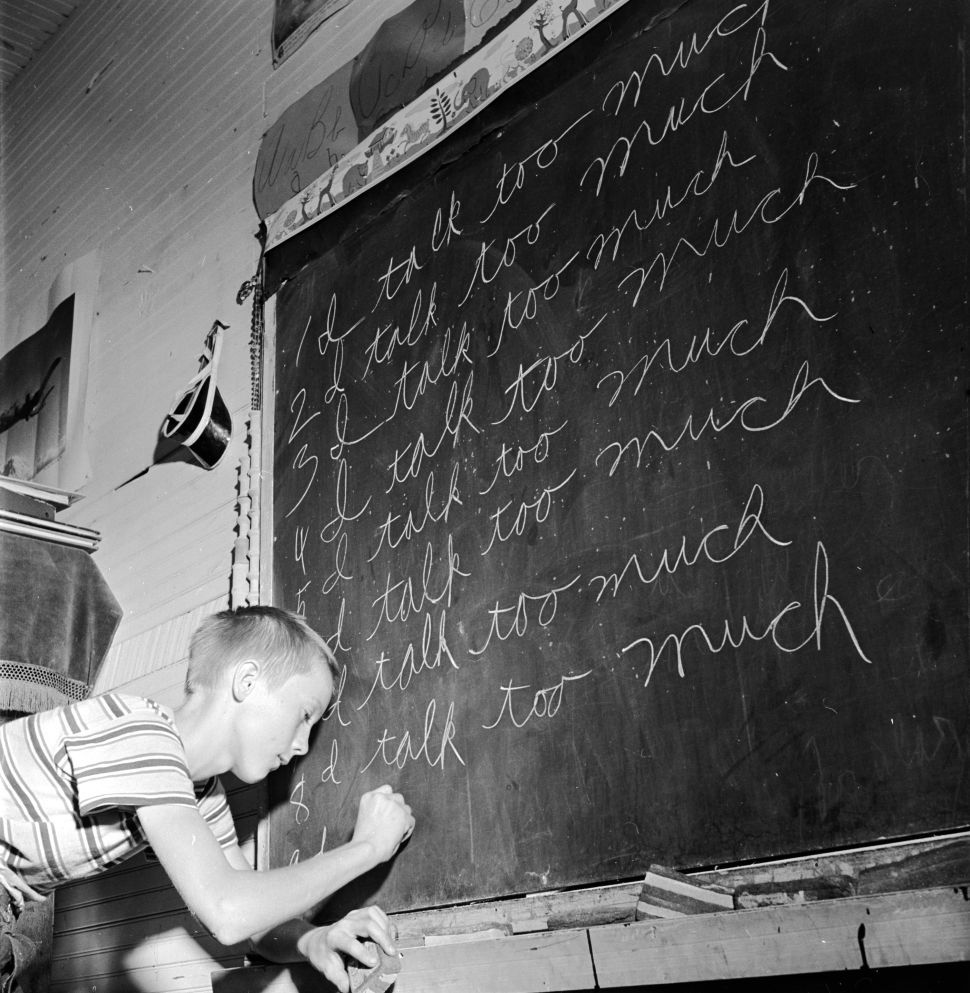 Aa Bb Cc
1 I talk too much
2 I talk too much
3 I talk too much
4 I talk too much
5 I talk too much
I talk too much
I talk too much
8 I talk too much